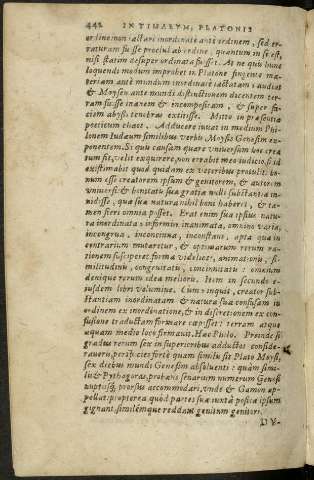 442 IN TIMAEUM, PLATONIS
ordine non iactari inordinatè antè ordinem, sed er-
raturam fuisse procul ab ordine, quantum in se est,
nisi statim desuper ordinata fuisset. At ne quis hunc
loquendi modum improbet in Platone fingente ma-
teriam antè mundum inordinatè iactatam: audiat
& Moysen antè mundi distinctionem dicentem ter-
ram fuisse inanem & incompositam, & super fa-
ciem abyssi tenebras extitisse. Mitto in præsentia
poeticum chaos. Adducere iuuat in medium Phi-
lonem Iudæum similibus verbis Moysis Genesim ex-
ponentem. Si quis causam quare vniuersum hoc crea
tum sit, velit exquirere, non errabit meo iudicio, si id
existimabit quod quidam ex veteribus prodidit: bo-
num esse creatorem ipsum & genitorem, & autorem
vniuersi: & bonitatis suæ gratia nulli substantiæ in-
uidisse, quæ sua natura nihil boni haberet, & ta-
men fieri omnia posset. Erat enim sua ipsius natu-
ra inordinata: informis, inanimata, omnino varia,
incongrua, inconcinna, inconstans, apta quæ in
contrarium mutaretur, & optimarum rerum ra-
tionem susciperet: formæ videlicet, animationis, si-
militudinis, congruitatis, concinnitatis: omnem
denique rerum ideæ melioris. Item in secundo e-
iusdem libri volumine. Cum, inquit, creator sub-
stantiam inordinatam & natura sua confusam in
ordinem ex inordinatione, & in discretionem ex con-
fusione traductam formare cœpisset: terram atque
aquam medio loco firmauit. Hæc Philo. Proinde si
gradus rerum sex in superioribus adductos conside-
raueris, perspicies fortè quam similis sit Plato Moysi,
sex diebus mundi Genesim absoluenti: quàm simi-
lis & Pythagoras, probans senarium numerum Genesi
nuptiisque prorsus accommodari, vnde & Gamon ap-
pellat: propterea quòd partes suæ iuxtà positæ ipsum
gignant similémque reddant genitum genitori.
DV-